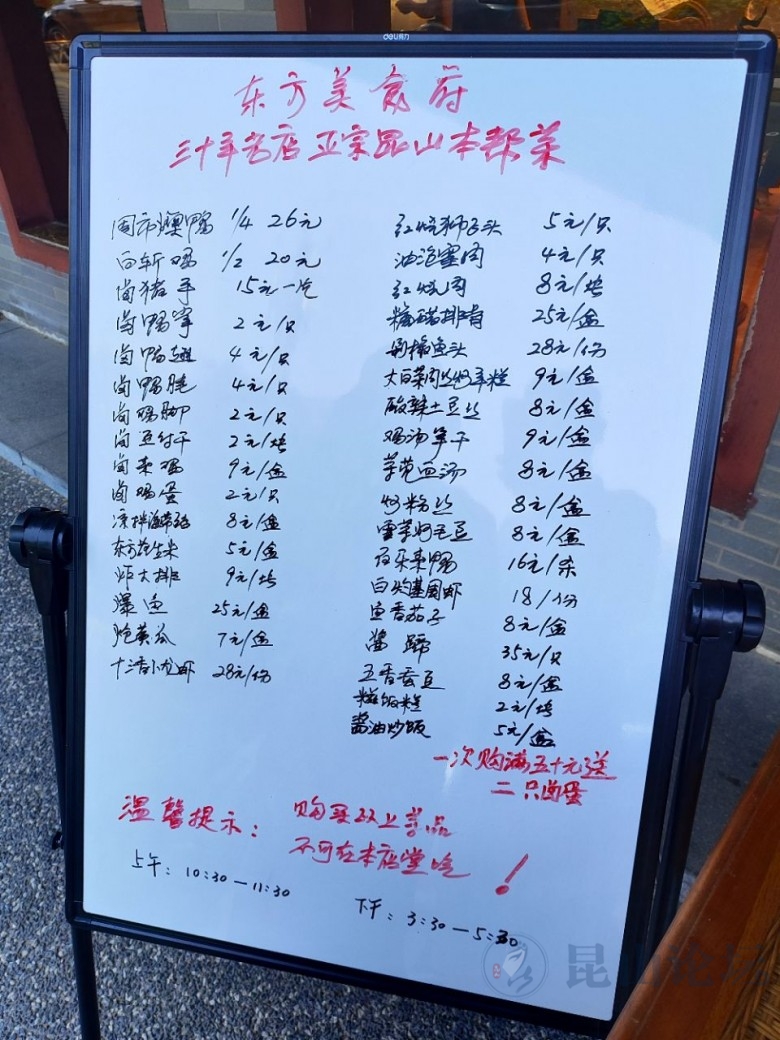 deli得力
东方美食府
三十年名店正宗昆山本帮菜
周市爊鸭 1/4 26元
白斩鸡 1/2 20元
卤猪手 15元一片
卤鸭掌 2元/只
卤鸭翅 4元/只
卤鸭肫 4元/只
卤鸡脚 2元/只
卤豆付干 2元/块
卤素鸡 9元/盒
卤鸡蛋 2元/只
凉拌海带丝 8元/盒
东方花生米 5元/盒
炸大排 9元/块
爆鱼 25元/盒
炝黄瓜 7元/盒
十三香小龙虾 28元/份
红烧狮子头 5元/只
油泡塞肉 4元/只
红烧肉 8元/块
糖醋排骨 25元/盒
剁椒鱼头 28元/份
大白菜肉丝炒年糕 9元/盒
酸辣土豆丝 8元/盒
鸡汤笋干 9元/盒
草菀血汤 8元/盒
炒粉丝 8元/盒
雪菜炒毛豆 8元/盒
百乐素鸭 16元/条
白灼基围虾 18/份
鱼香茄子 8元/盒
酱蹄 35元/只
五香蚕豆 8元/盒
糍饭糕 2元/块
酱油炒饭 5元/盒
一次购满五十元送
二只卤蛋
温馨提示： 购买以上菜品
不可在本店堂吃！
上午：10:30—11:30
下午：3:30—5:30
昆山论坛